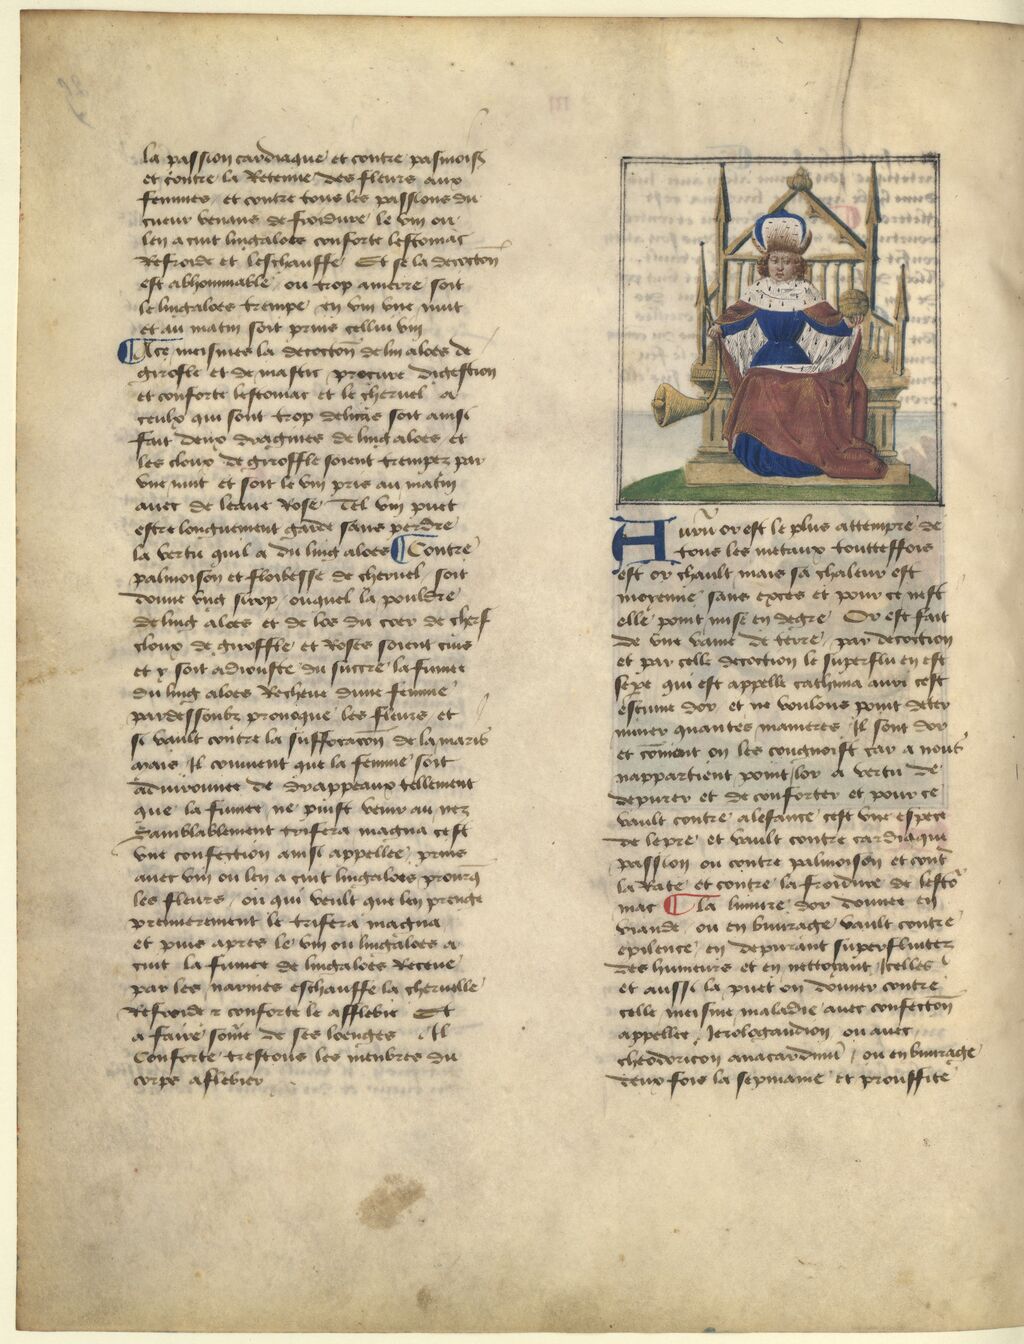 la passion cardiaque et contre pasmoisō
et contre la Retenue des fleurs aux
femmes et contre tous les passions du
cueur venans de froidure le vin ou
len a cuit lingaloes conforte lestomac
Refroide et leschauffe Et se la decoction
est abhominable ou trop amerre soit
le lingaloes trempe en vin vne nuit
et au matin soit prins cellui vin
A ce meismes la decoction de lin aloes de
girofle et de mastic procure digestion
et conforte lestomac et le cheruel a
ceulx qui sont trop soit ainsi
fait deux dragmes de ling aloes et
les cloux de giroffle soient trempez par
vne nuit et soit le vin pris au matin
auec de leaue Rose Tel vin puet
estre longuement garde sans perdre
la vertu quil a du ling aloes Contre
palmoison et floibesse de cheruel soit
donne vng sirop ouquel la pouldre
de ling aloes et de los du coer de cherf
cloux de giroffle et Roses soient cuis
et y soit adiouste du succre la fumee
du ling aloes Recheue dune femme
pardessoubz prouoque les fleurs et
si vault contre la suffocacon de la maris
mais Il conuient que la femme soit
aduironnee de drappeaux tellement
que la fumee ne puist venir au nez
Samblablement trifera magna cest
vne confection ainsi appellee prise
auec vin ou len a cuit lingaloes prouoq̄
les fleurs ou qui veult que len prenge
premierement le trifera magna
et puis apres le vin ou lingaloes a
cuit la fumee de lingaloes Receue
par les narines eschauffe la cheruelle
Refroide et conforte le afflebie Et
a faire some de ses loenges Il
Conforte trestous les menbres du
corps aflebier
Aurū or est le plus attempre de
tous les metaux toutteffois
est or chault mais sa chaleur est
moyenne sans exces et pour ce nest
elle point mise en degre Or est fait
de vne vaine de terre par decoction
et par celle decoction le superflu en est
sepe qui est appelle cathima auri cest
escume dor et ne voulons point deter
miner quantes manieres Il sont dor
et cōment on les congnoist car a nous
nappartient point lor a vertu de
depurer et de conforter et pour ce
vault contre alefance cest vne espece
de lepre et vault contre cardiaque
passion ou contre palmoison et cont̄
la Rate et contre la froidure de lestō
mac la limure dor donnee en
viande ou en buurage vault contre
epilence en depurant superfluitez
des humeurs et en nettoyant Icelles
et aussi la puet on donner contre
celle meisme maladie auec confection
appellee Ierologaudion ou auec
theodoricon anacardinū ou en buurage
deux fois la sepmaine et prouffite